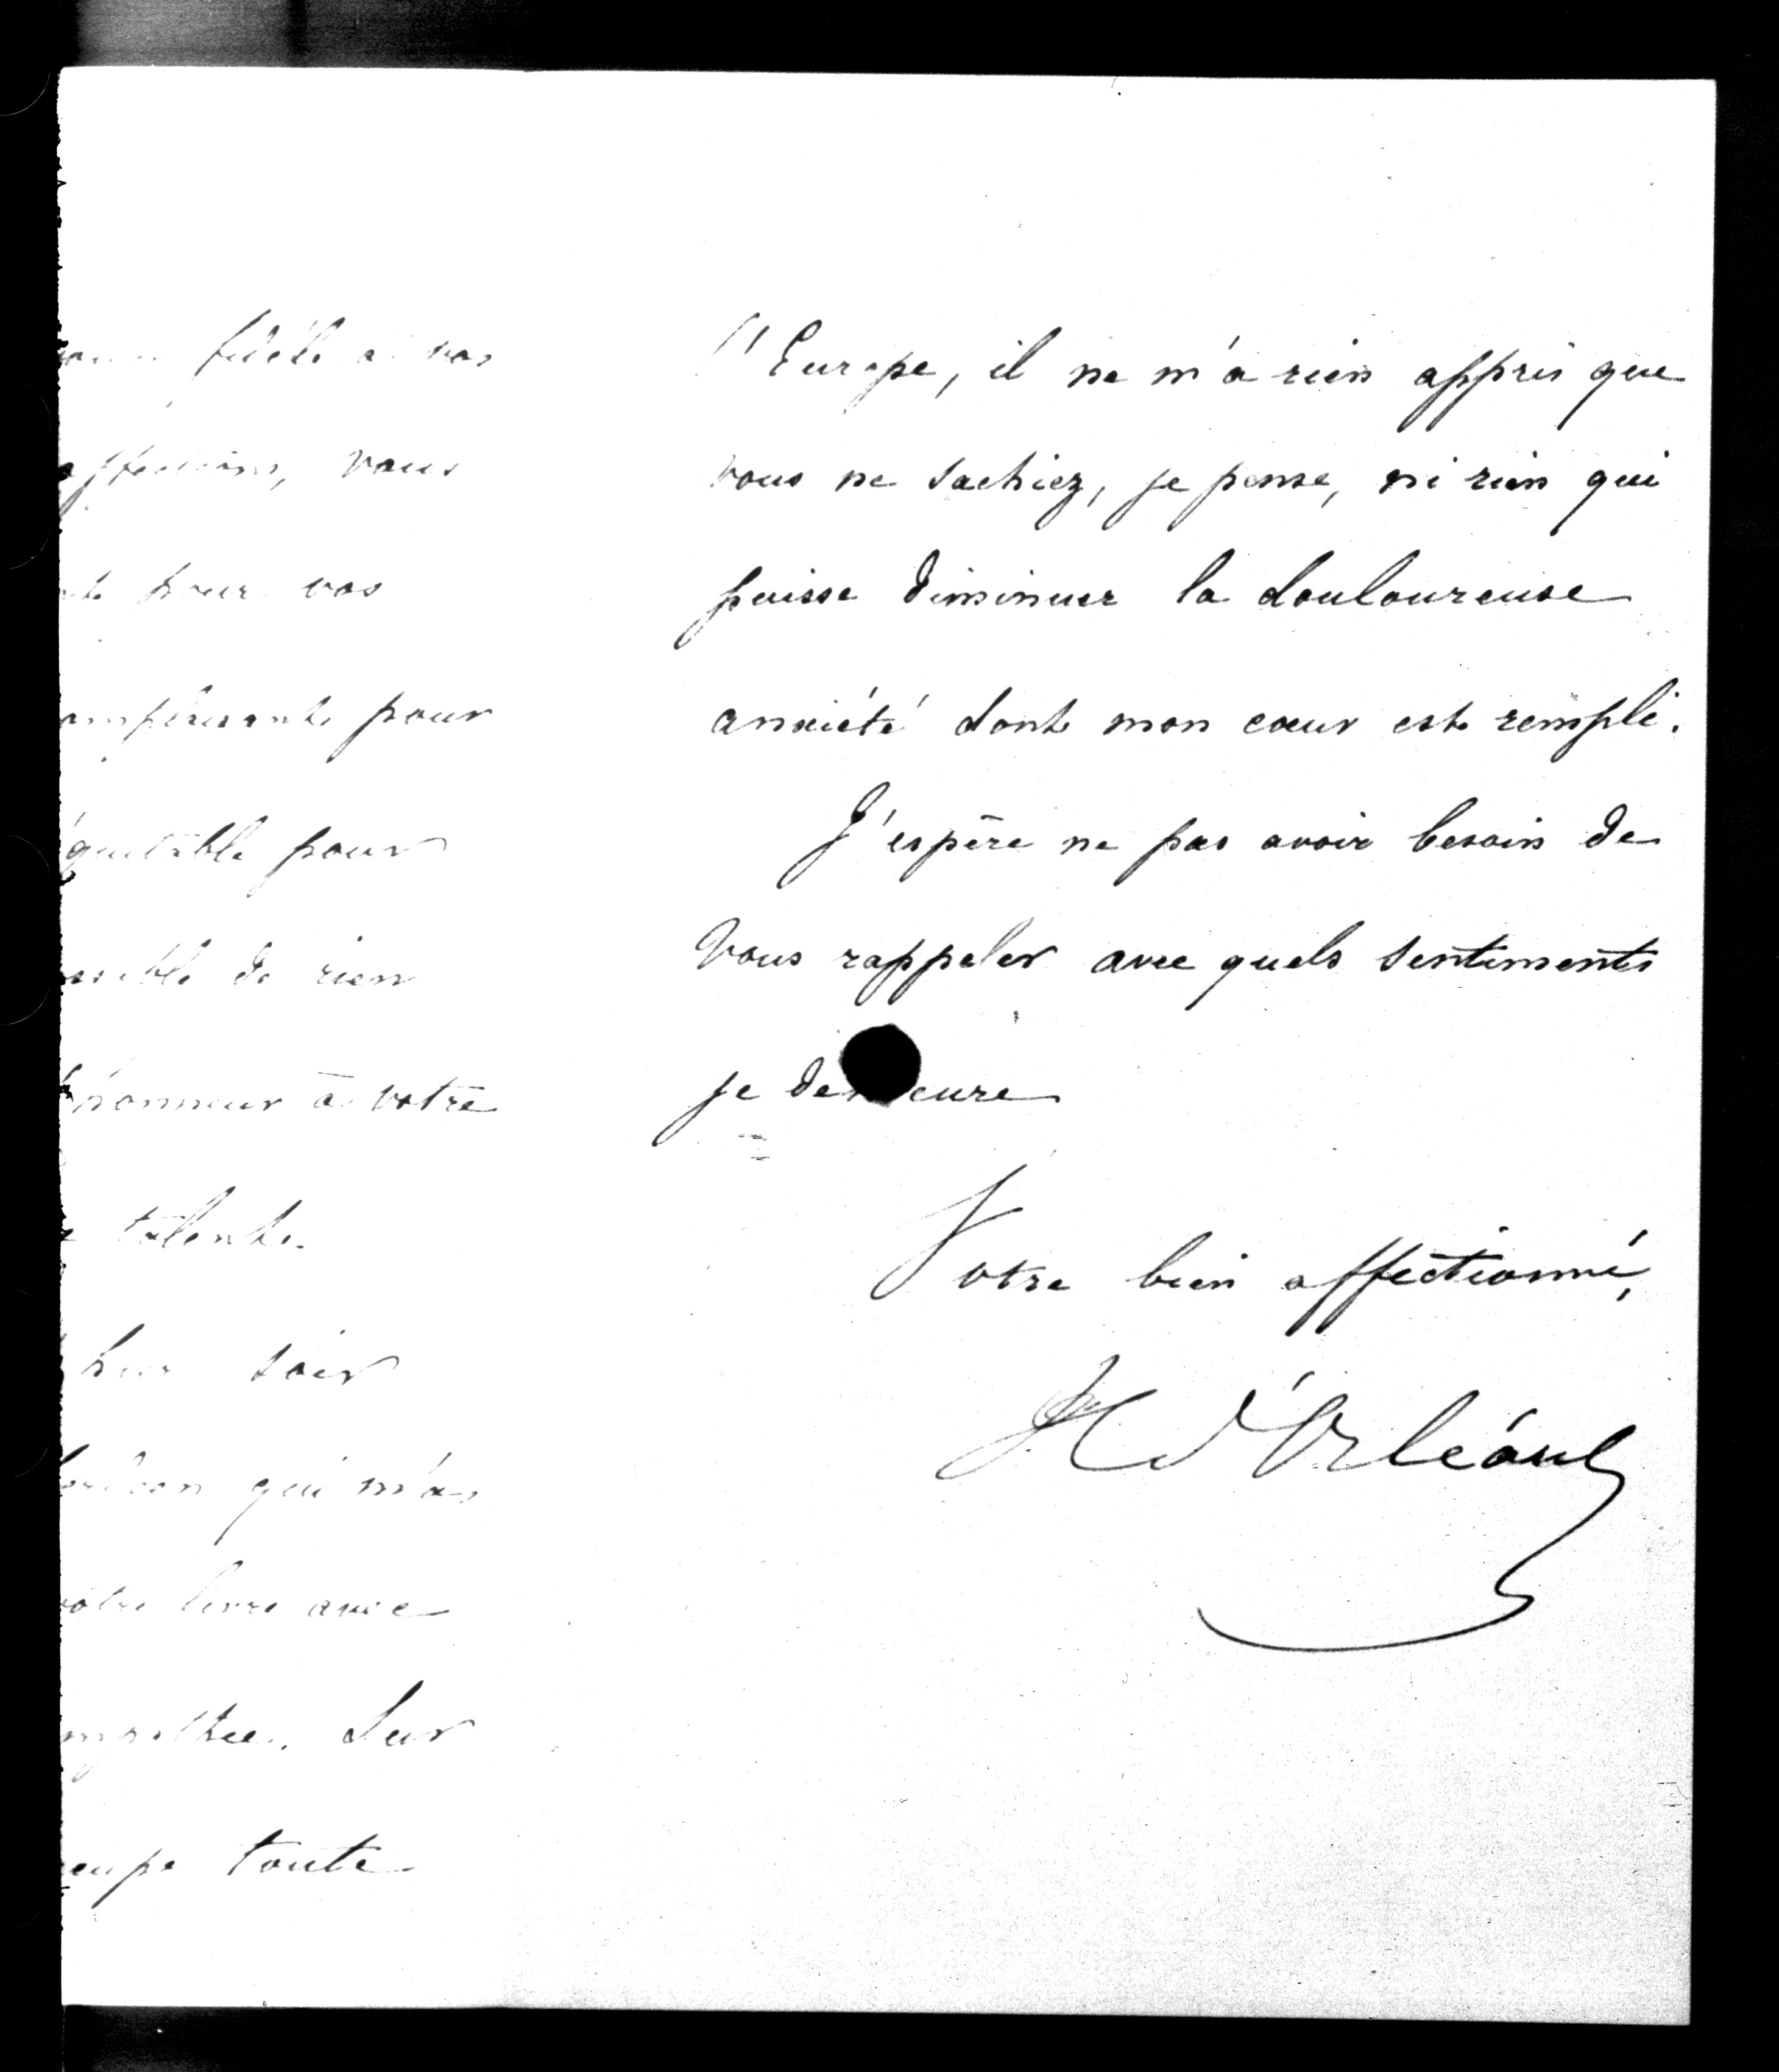 fidèle à vos
affections, vous
pour vos
complaisante pour
équitable pour
de rien
honneur à votre
talente.
hier soir
qui m'a
votre livre avec
Sur
occupe toute
l'Europe, il ne m'a rien appris que
vous ne sachiez, je pense, ni rien qui
puisse diminuer la douloureuse
anxiété dont mon cœur est rempli.
J'espère ne pas avoir besoin de
vous rappeler avec quels sentiments
je demeure
Votre bien affectionné,
H d'Orléans